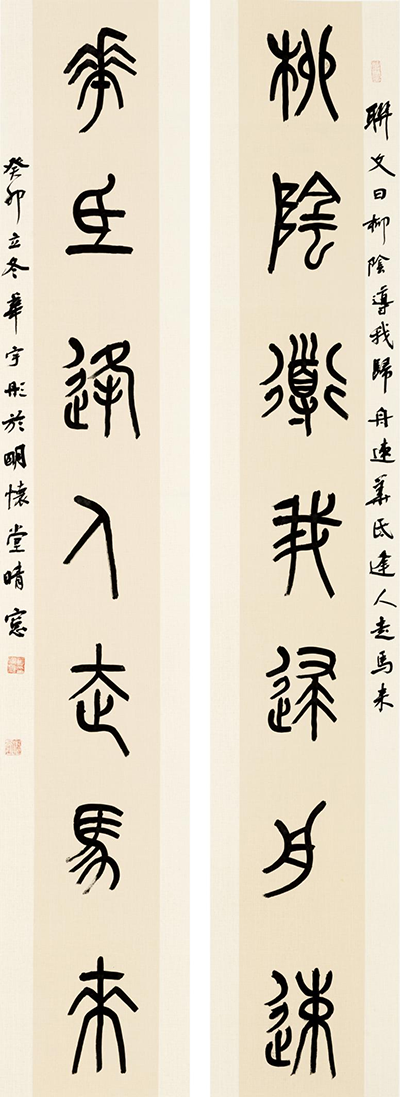 聯文曰柳陰導我歸舟速華氐逢人走馬來
柳陰導我歸舟速
華氐逢人走馬來
癸卯立冬華宇彤於明懷堂晴窗